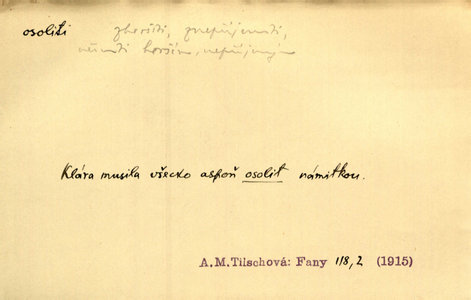 osoliti zhoršiti, znepříjemniti,
učiniti horším, nepříjemným
Klára musila všecko aspoň osolit námitkou.
A.M.Tilschová: Fany 118,2 (1915)